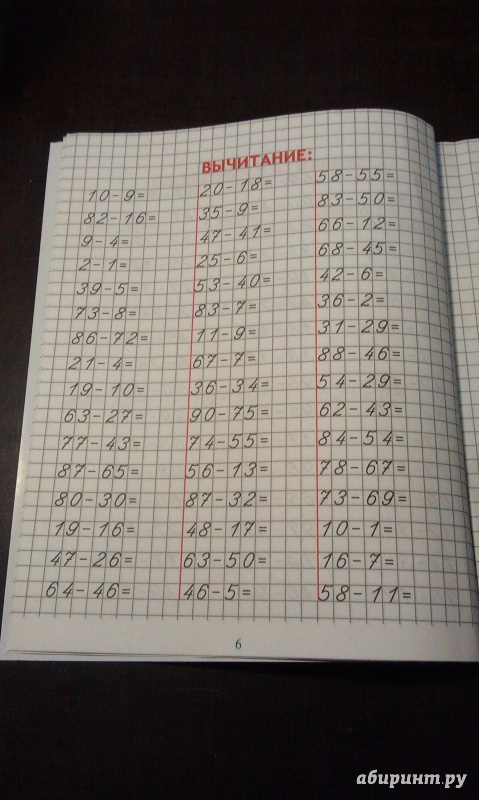 ВЫЧИТАНИЕ:
10-9=
82-16=
9-4=
2-1=
39-5=
73-8=
86-72=
21-4=
19-10=
63-27=
77-43=
87-65=
80-30=
19-16=
47-26=
64-46=
20-18=
35-9=
47-41=
25-6=
53-40=
83-7=
11-9=
67-7=
36-34=
90-75=
74-55=
56-13=
87-32=
48-17=
63-50=
46-5=
58-55=
83-50=
66-12=
68-45=
42-6=
36-2=
31-29=
88-46=
54-29=
62-43=
84-54=
78-67=
73-69=
10-1=
16-7=
58-11=
6
абиринт.ру